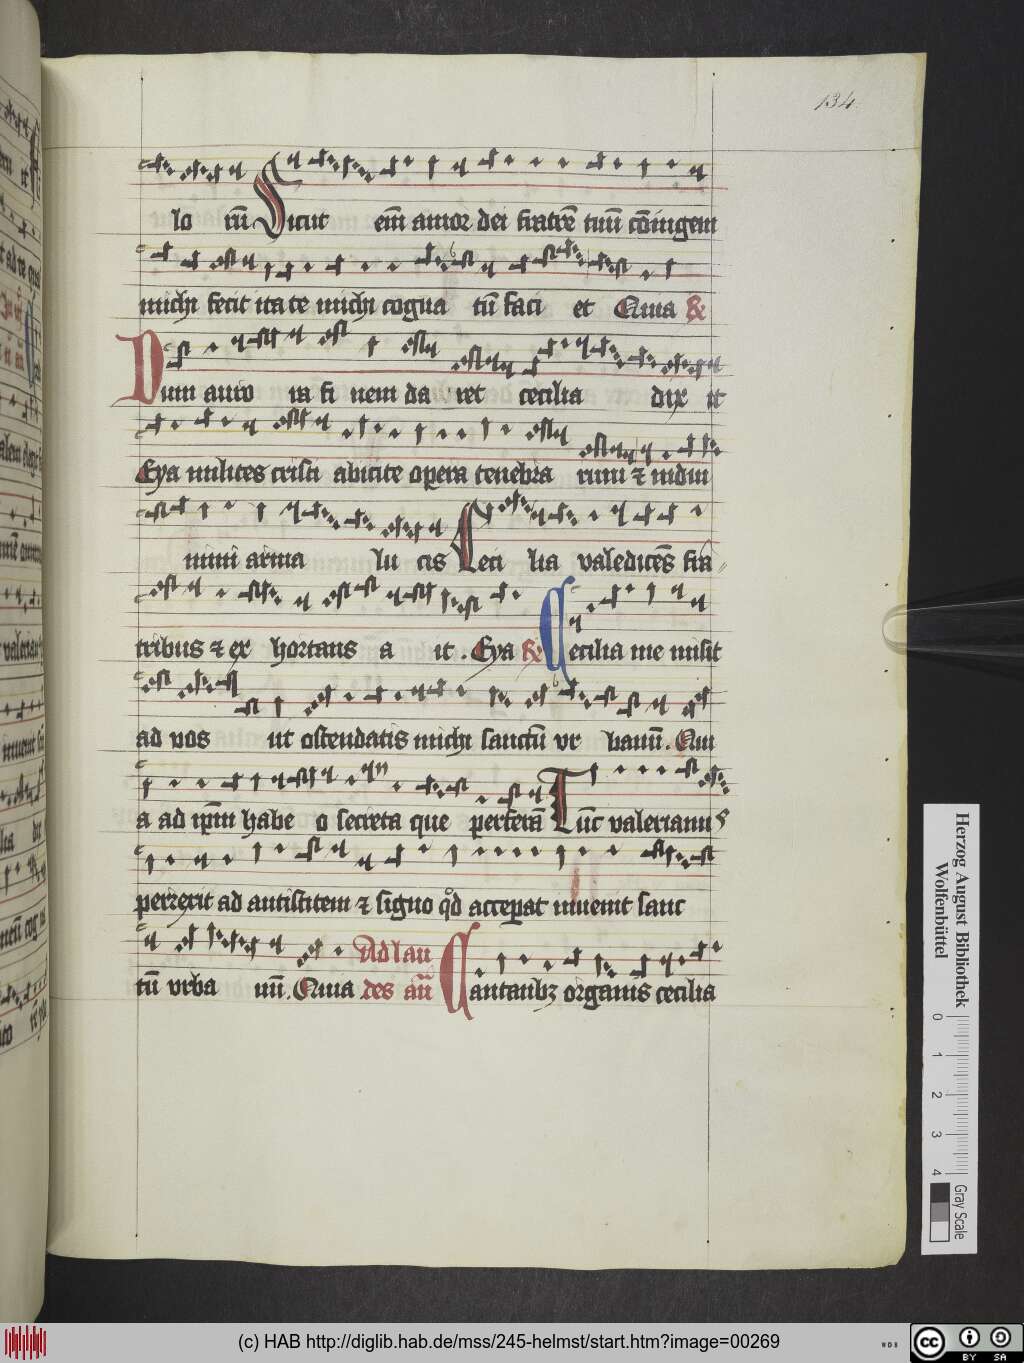 134
lo rū Sicut em̄ amor dei fratrē tuū cōiugem
michi fecit ita te michi cogna tū faci et Quia
Dum auro ra fi nem da ret cecilia dix it
Eya milites cristi abicite opera tenebra rum ⁊ indui
mini arma lu cis Ceci lia valedicēs fra
tribus ⁊ ex hortans a it . Eya Cecilia me misit
ad vos ut ostendatis michi sanctū vr banū . Qui
a ad ip̄m habe o secreta que perferā Tūc valerianus
perrexit ad antistitem ⁊ signo qͦd accepat inuenit sanc
tū vrba nū. Quia Ad lau des añ Cantantibꝫ organis cecilia
Herzog August Bibliothek
Wolfenbüttel
0 1 2 3 4
Gray Scale
(c) HAB http://diglib.hab.de/mss/245-helmst/start.htm?image=00269
WDB
cc BY SA